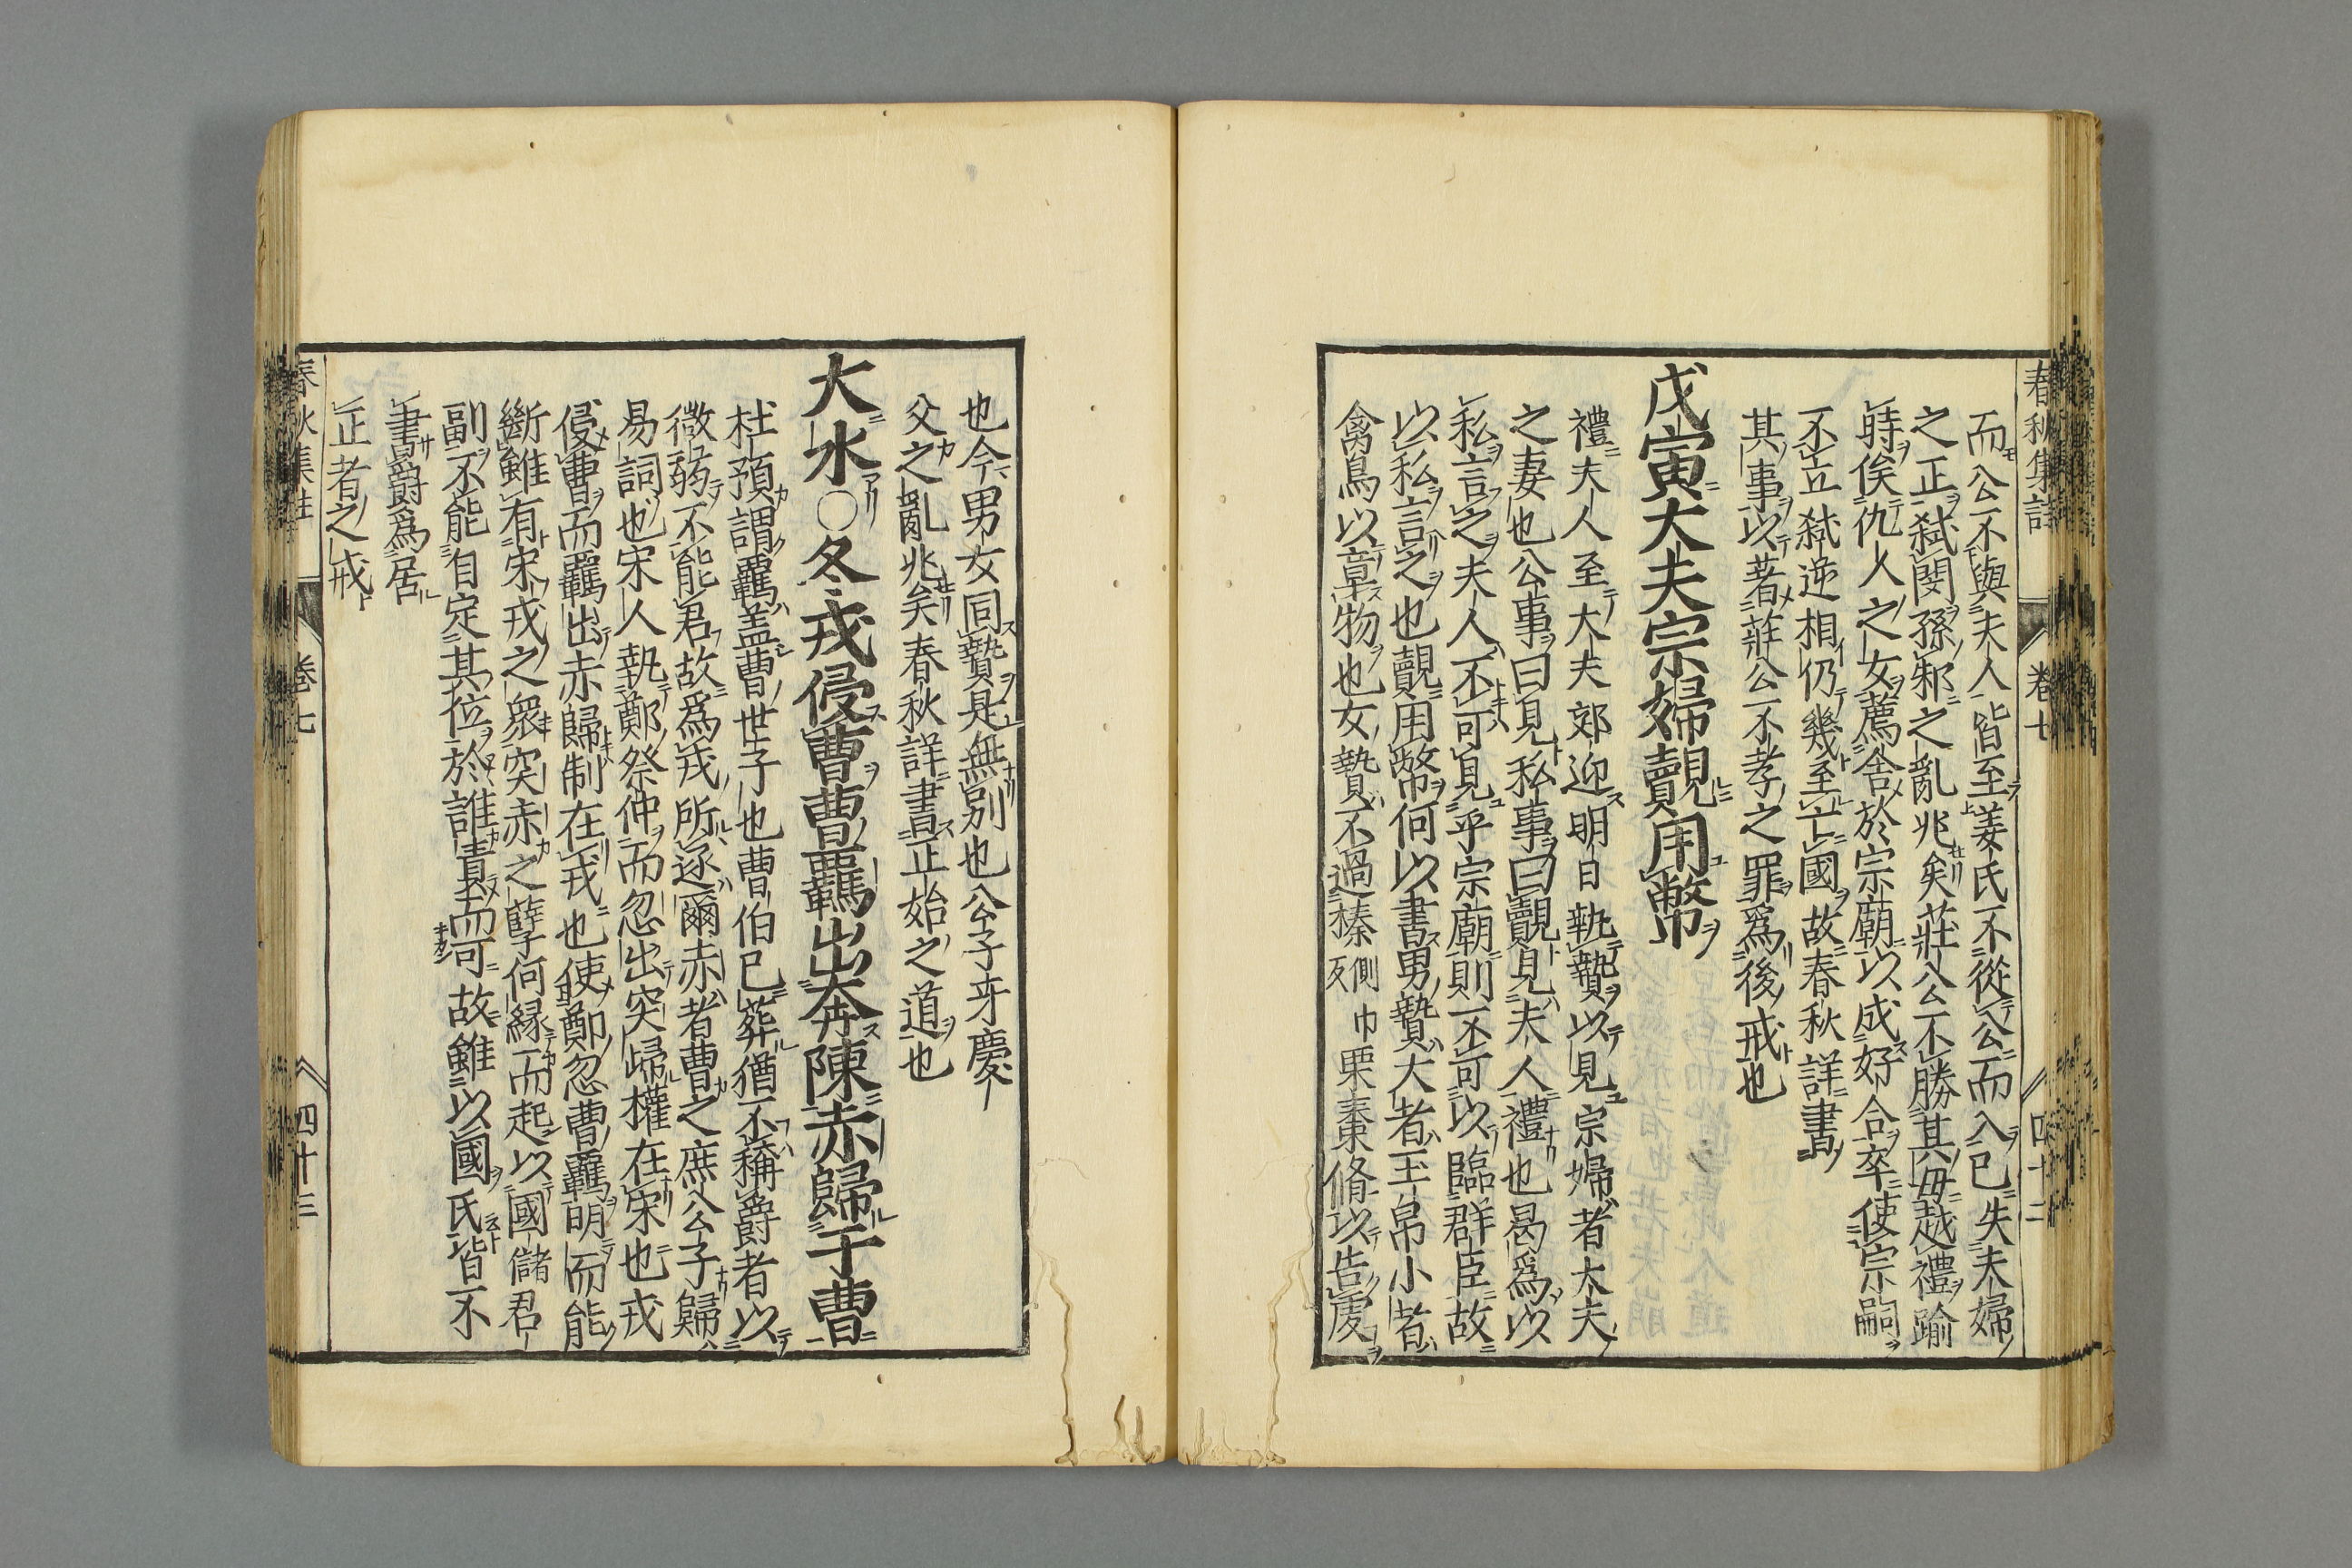 春秋集註 卷七 四十二
而公不與夫人皆至姜氏不從公而入已失夫婦
之正弑閔孫邾之亂兆矣莊公不勝其母越禮踰
時俟仇人之女薦舍於宗廟以成好合卒使宗嗣
不立弑逆相仍幾至亡國故春秋詳書
其事以著莊公不孝之罪爲後戒也
戊寅大夫宗婦覿用幣
禮夫人至大夫郊迎明日執贄以見宗婦者大夫
之妻也公事曰見私事曰覿見夫人禮也曷爲以
私言之夫人不可見乎宗廟則不可以臨群臣故
以私言之也覿用幣何以書男贄大者玉帛小者
禽鳥以章物也女贄不過榛側巾反栗棗脩以告虔
也今男女同贄是無別也公子牙慶
父之亂兆矣春秋詳書正始之道也
大水○冬戎侵曹曹羈出奔陳赤歸于曹
杜預謂羈蓋曹世子也曹伯已葬猶不稱爵者以
微弱不能君故爲戎所逐爾赤者曹之庶公子歸
易詞也宋人執鄭祭仲而忽出突歸權在宋也戎
侵曹而羈出赤歸制在戎也使鄭忽曹羈明而能
斷雖有宋戎之衆突赤之孽何緣而起以國儲君
副不能自定其位於誰責而可故雖以國氏皆不
書爵爲居
正者之戒
春秋集註 卷七 四十三